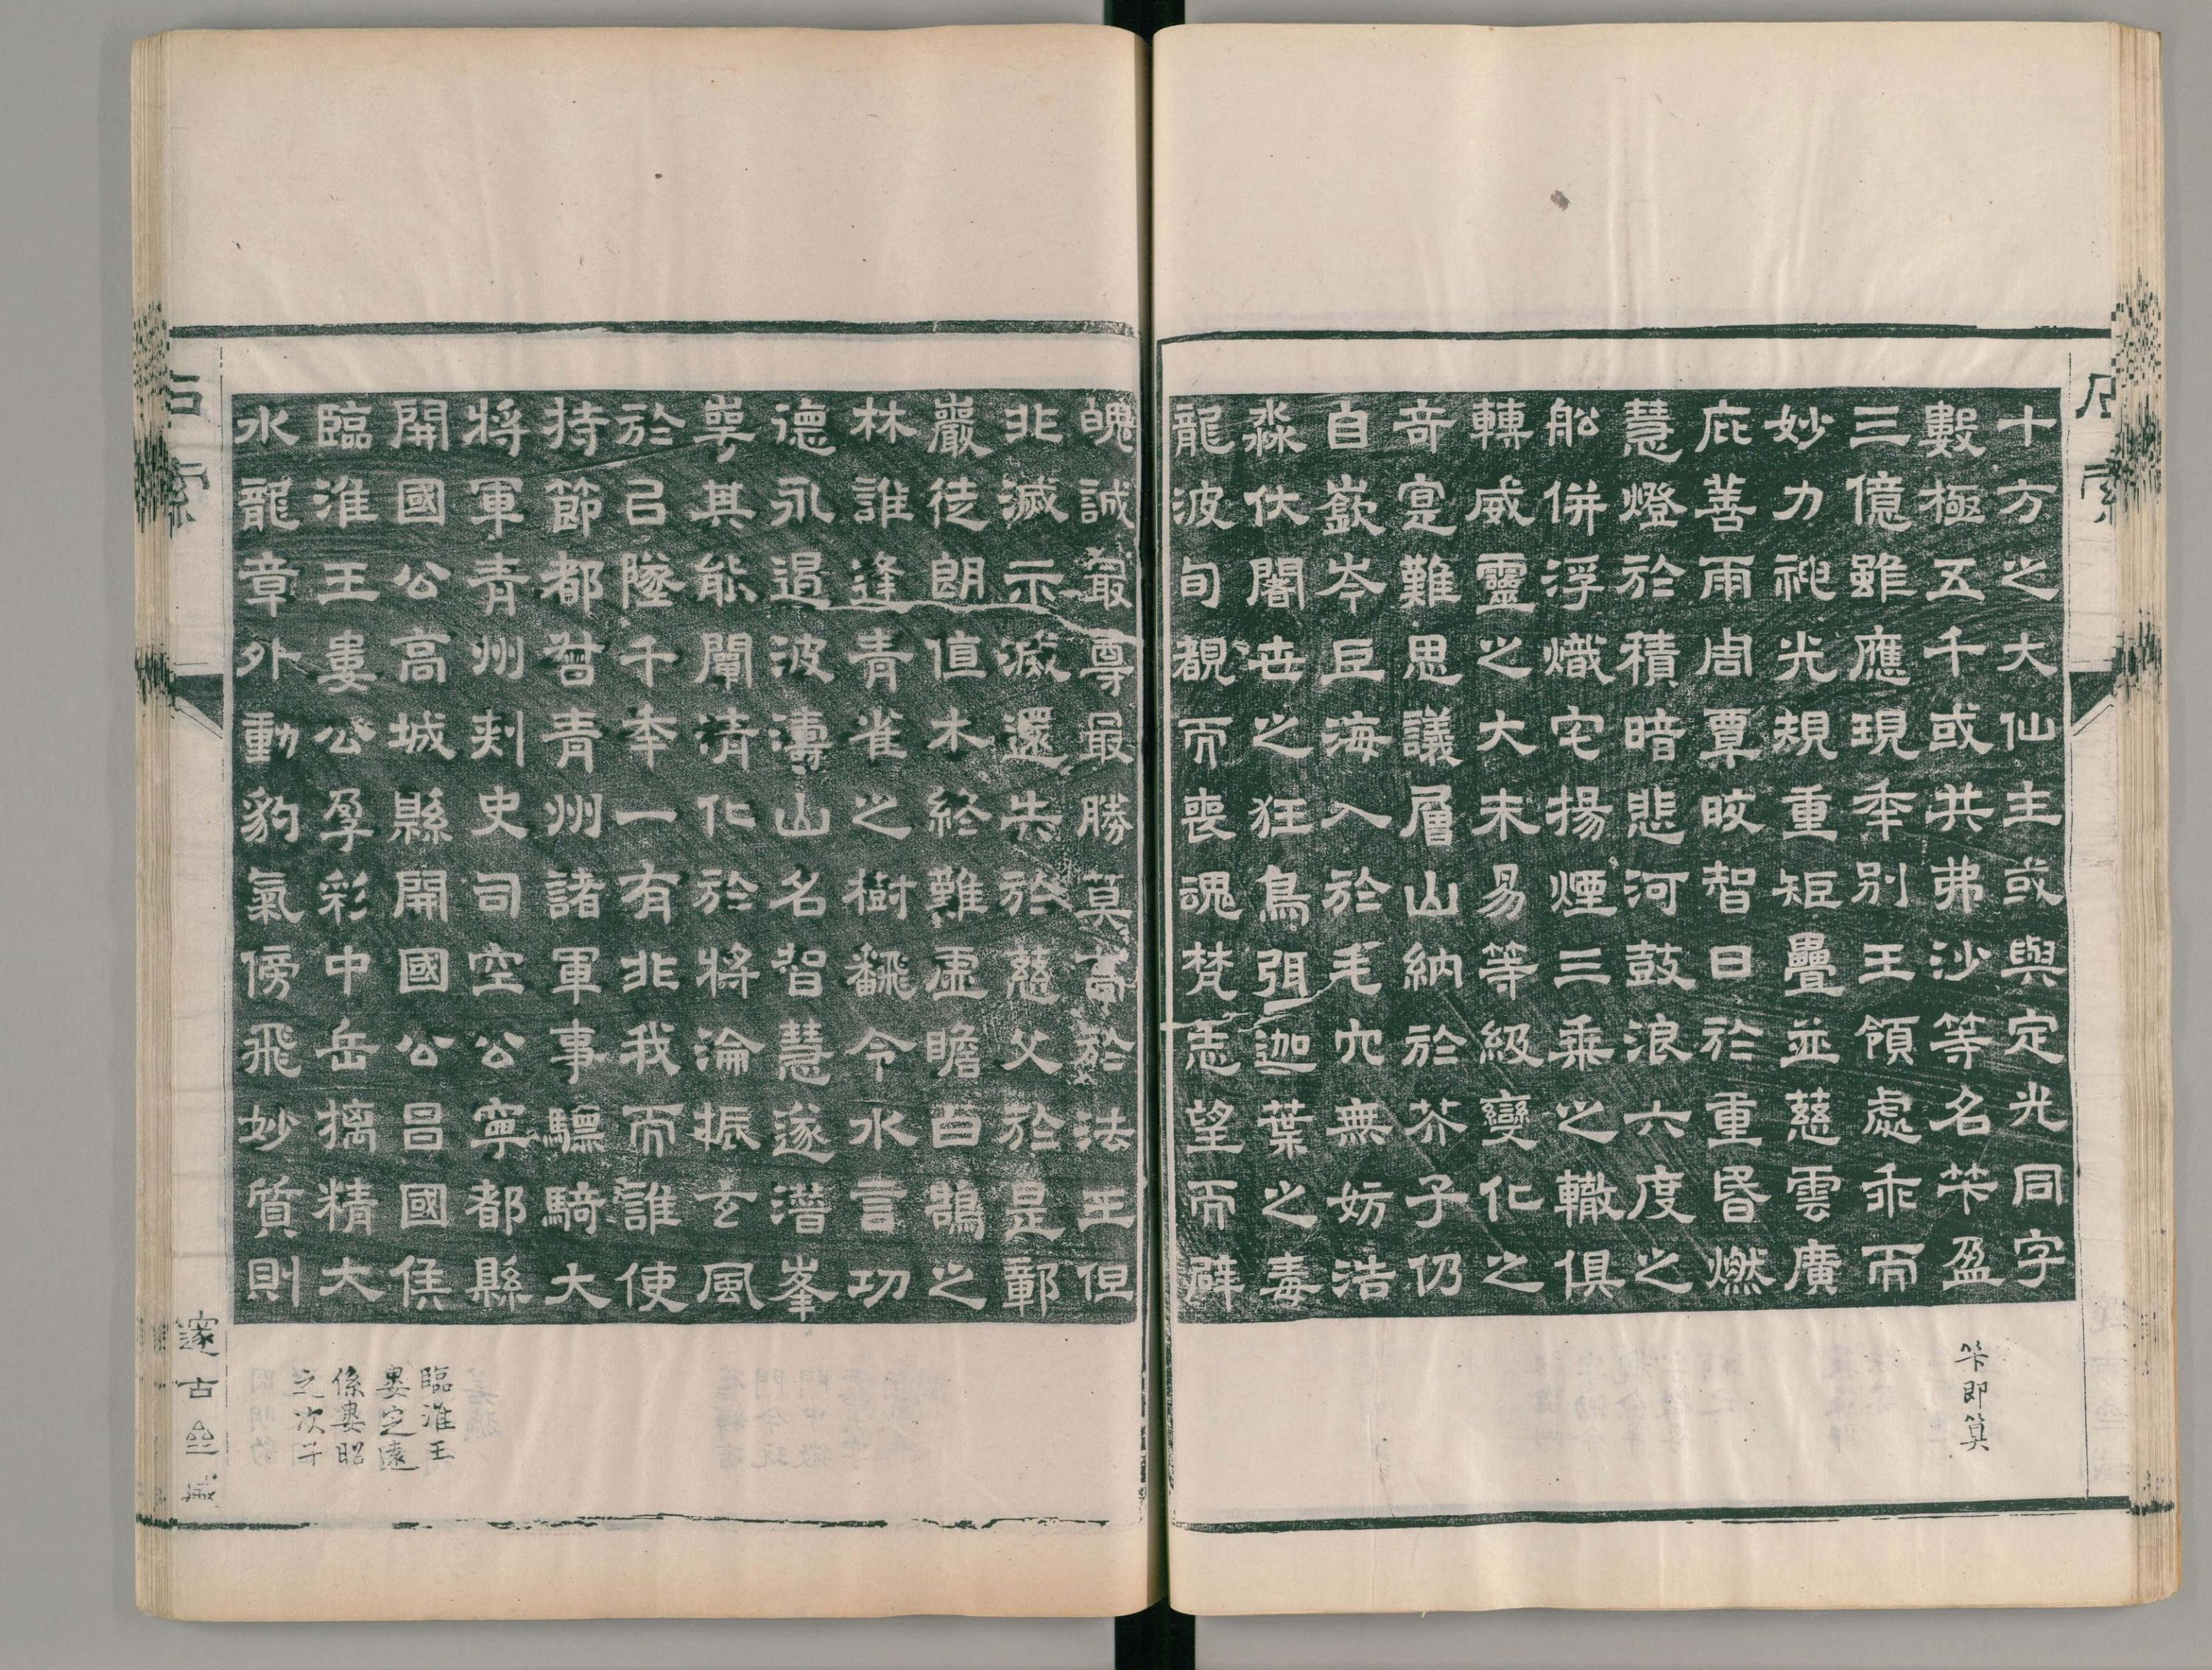 十方之大仙主或與定光同字
數極五千或共弗沙等名笇盈
三億雖應現秊別王領處乖而
妙力神光規重矩疊並慈雲廣
庇善雨周覃晈智日於重昏燃
慧燈於積暗悲河鼓浪六度之
船併浮熾宅揚煙三乘之轍俱
轉威靈之大末易等級變化之
奇寔難思議層山納於芥子仍
自嶔岑巨海入於毛穴無妨浩
淼伏闍世之狂鳥弭迦葉之毒
龍波旬覩而喪魂梵志望而辟
魄誠最尊最勝莫高於法王但
非滅示滅還失於慈父於是鄿
巖徒朗值木終難虛瞻白鵠之
林誰逢青雀之樹飜令水言功
德永遏波濤山名智慧遂潛峯
崿其能闡清化於將淪振玄風
於已墜千秊一有非我而誰使
持節都督青州諸軍事驃騎大
將軍青州刺史司空公寧都縣
開國公高城縣開國公呂國侯
臨淮王婁公孕彩中岳摛精大
水龍章外動豹氣傍飛妙質則
笇即算
臨淮王
婁定遠
係婁昭
之次子
石索
邃古齋藏